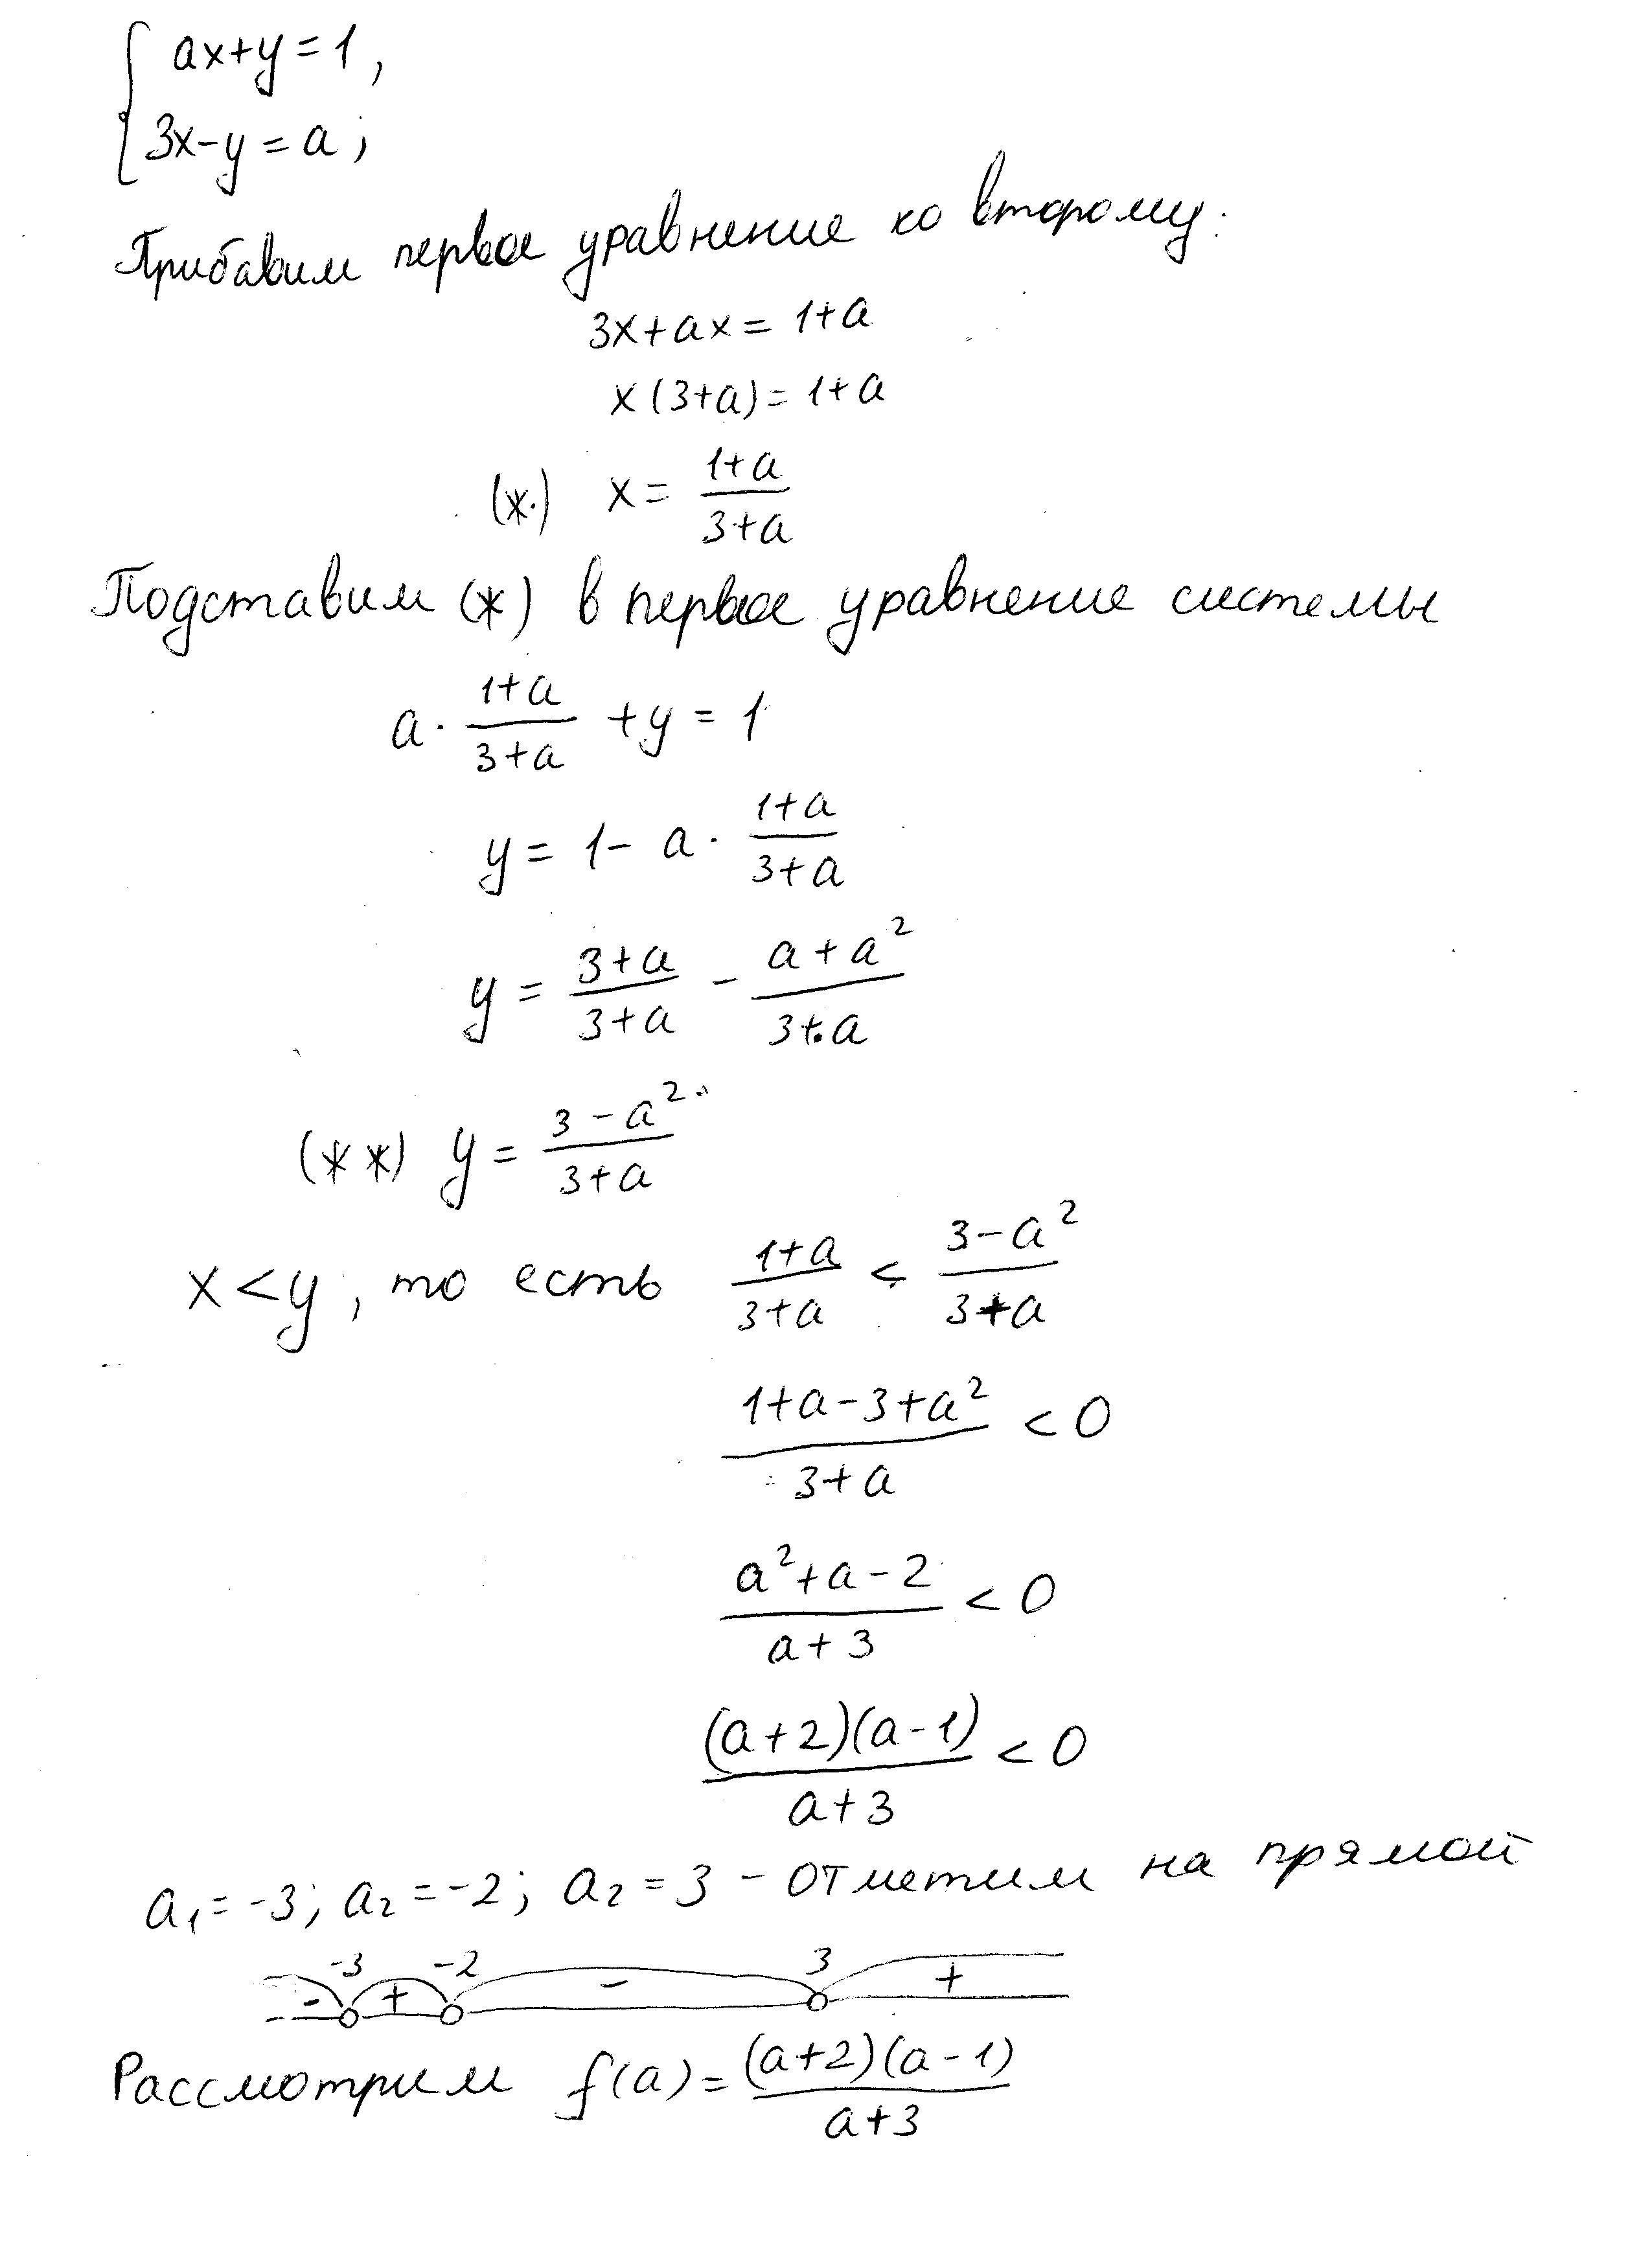 { ax+y=1,
3x-y=a;
Прибавим первое уравнение ко второму:
3x+ax=1+a
x(3+a)=1+a
(*) x = (1+a)/(3+a)
Подставим (*) в первое уравнение системы
a · (1+a)/(3+a) + y = 1
y = 1 - a · (1+a)/(3+a)
y = (3+a)/(3+a) - (a+a²)/(3+a)
(**) y = (3-a²)/(3+a)
x<y, то есть (1+a)/(3+a) < (3-a²)/(3+a)
(1+a-3+a²)/(3+a) < 0
(a²+a-2)/(a+3) < 0
((a+2)(a-1))/(a+3) < 0
a₁=-3; a₂=-2; a₂=3 - отметим на прямой
-3 -2 3
- + - +
Рассмотрим f(a) = ((a+2)(a-1))/(a+3)